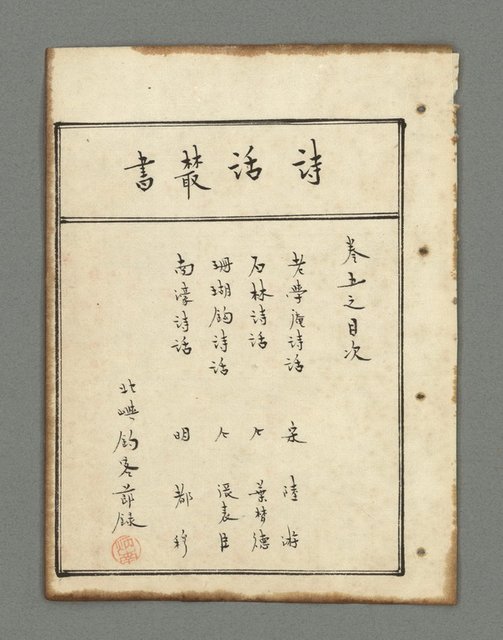 詩話叢書
卷五之目次
老學庵詩話 宋 陸游
石林詩話 仝 葉夢得
珊瑚鈎詩話 仝 張表臣
南濠詩話 明 都穆
北嶼釣客節錄